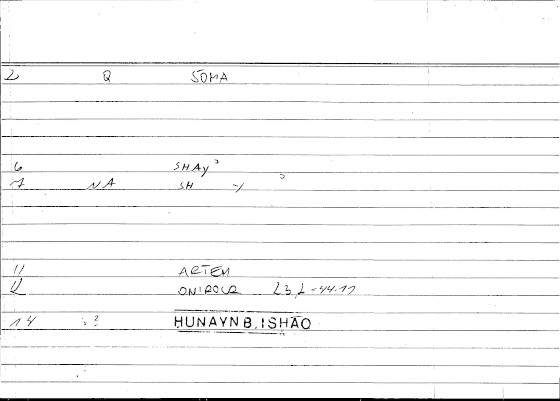 2 Q SOMA
6 SHAY
7 NA SH Y
11 ARTEM
12 ONIROCR 23,2-44.17
14 HUNAYN B. ISHĀQ